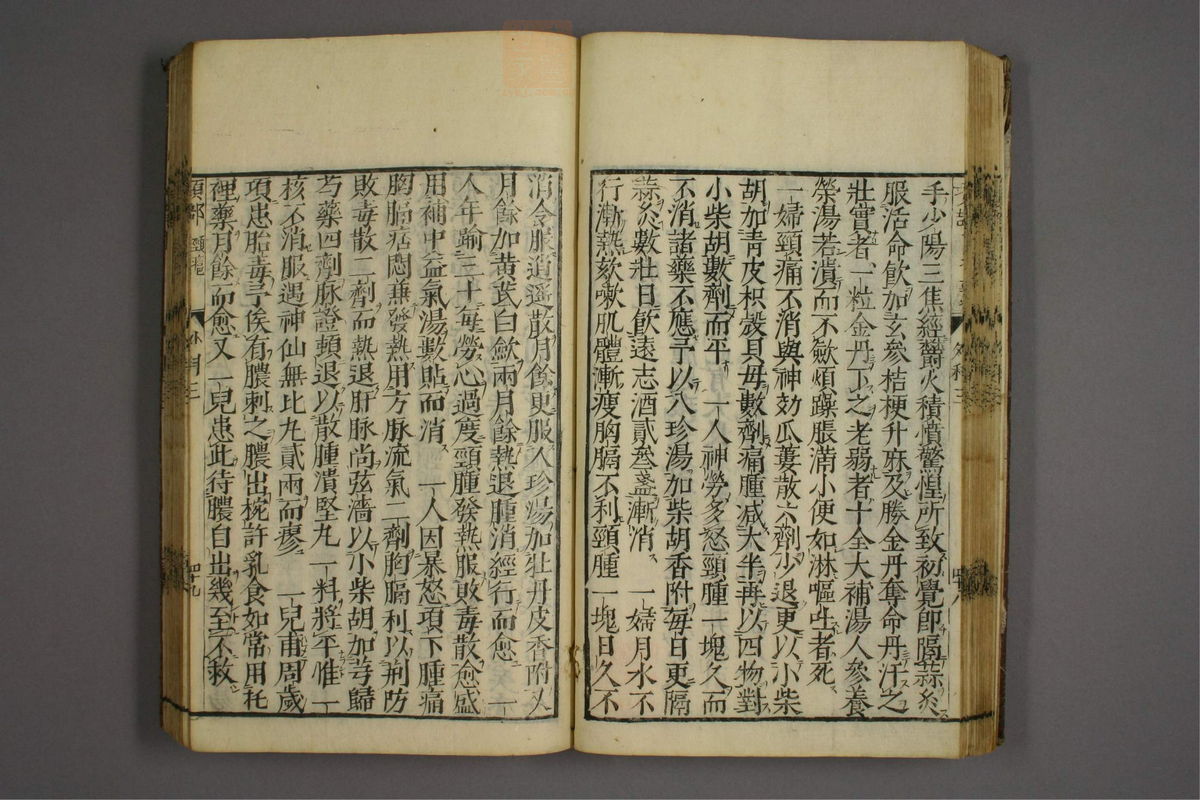 手少陽三焦經鬱火積憤驚惶所致初覺即隔蒜灸
服活命飲加玄參桔梗升麻及勝金丹奪命丹汗之
壯實者一粒金丹下之老弱者十全大補湯人參養
榮湯若潰而不歛煩躁脹滿小便如淋嘔吐者死
一婦頸痛不消與神効瓜蔞散六劑少退更以小柴
胡加青皮枳殼貝母數劑痛腫减大半再以四物對
小柴胡數劑而平 一人神勞多怒頸腫一塊久而
不消諸藥不應予以八珍湯加柴胡香附每日更隔
蒜灸數壯日飲遠志酒貳叄盞漸消 一婦月水不
行漸熱欬嗽肌體漸瘦胸膈不利頸腫一塊日久不
外科 三
四八
消令服逍遥散月餘更服八珍湯加牡丹皮香附又
月餘加黃芪白歛兩月餘熱退腫消經行而愈 一
人年踰三十每勞心過度頸腫發熱服敗毒散愈盛
用補中益氣湯數貼而消 一人因暴怒項下腫痛
胸膈痞悶兼發熱用方脉流氣二劑胸膈利以荊防
敗毒散二劑而熱退肝脉尚弦濇以小柴胡加芎歸
芍藥四劑脉證頓退以散腫潰堅丸一料將平惟一
核不消服遇神仙無比丸貳兩而瘳 一兒甫周歲
項患胎毒予俟有膿刺之膿出椀許乳食如常用托
裡藥月餘而愈又一兒患此待膿自出幾至不救
頸部 外科三 四十九